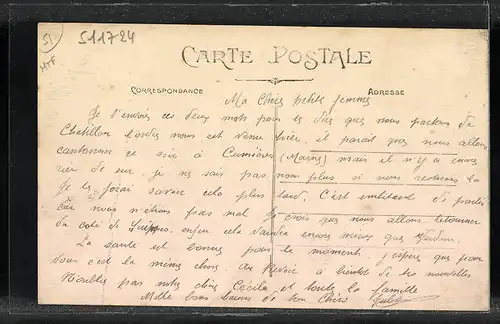 51
511724
CARTE POSTALE
CORRESPONDANCE
ADRESSE
Ma Chère petite femme
Je t'envoies ces deux mots pour te dire que nous partons de
Chatillon l'ordre nous est venu hier, il parait que nous allons
cantonner ce soir à Cumières (Marne) mais il n'y a encore
rien de sur. je ne sais pas non plus si nous resterons là
Je te ferai savoir cela plus tard. C'est embêtant de partir
car nous n'étions pas mal. Je crois que nous allons retourner
du coté de Suippes. enfin cela vaudra encore mieux que Verdun.
La santé est bonne pour le moment. j'espère que pour
vous c'est la même chose. Au revoir à bientôt de tes nouvelles
N'oublies pas notre chère Cécile et toute la famille
Mille bons baisers de ton Chéri